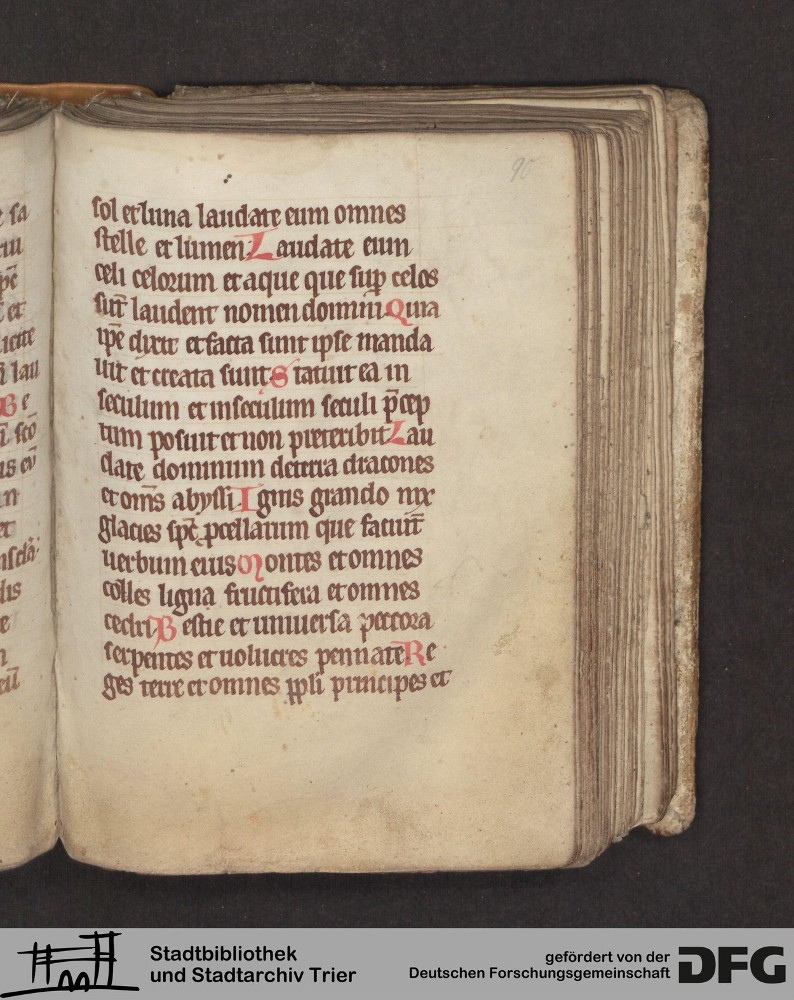 90
sol et luna laudate eum omnes
stelle et lumen̄ Laudate eum
celi celorum et aque que suꝑ celos
sūt laudent nomen domini Quia
ip̄e dixit et facta sunt ipse manda
uit et creata sunt Statuit ea in
seculum et inseculum seculi p̄cep
tum posuit et non preteribit Lau
date dominum deterra dracones
et om̄s abyssi Ignis grando nix
glacies sp̄c ꝓcellarum que faciūt
uerbum eius Montes et omnes
colles ligna fructifera et omnes
cedri Bestie et uniuersa peccora
serpentes et uolucres pennatē Re
ges terre et omnes ꝓpli principes et
sa
pē
et
lau
Be
scō
is eū
in
et
lis
e
eū
Stadtbibliothek
und Stadtarchiv Trier
gefördert von der
Deutschen Forschungsgemeinschaft
DFG